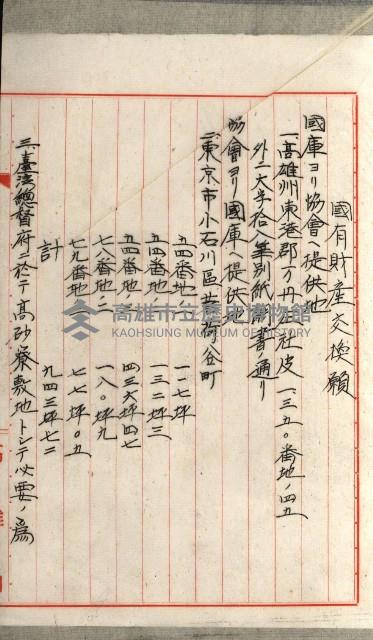 國有財産交換願
國庫ヨリ協會ヘ提供地
一、高雄州東港郡萬丹 社皮 一、三五〇番地ノ四五
外ニ大字拾八筆別紙 書ノ通リ
協會ヨリ國庫ヘ提供地
二、東京市小石川區茗荷谷町
五四番地一 一一七坪
五四番地二 一三二坪三
五四番地 四三六坪四七
七八番地ノ二 一八〇坪九
七九番地一 七七坪〇五
計 九四三坪七二
三、臺湾總督府ニ於テ高砂寮敷地トシテ必要ノ爲
高雄市立歷史博物館
KAOHSIUNG MUSEUM OF HISTORY